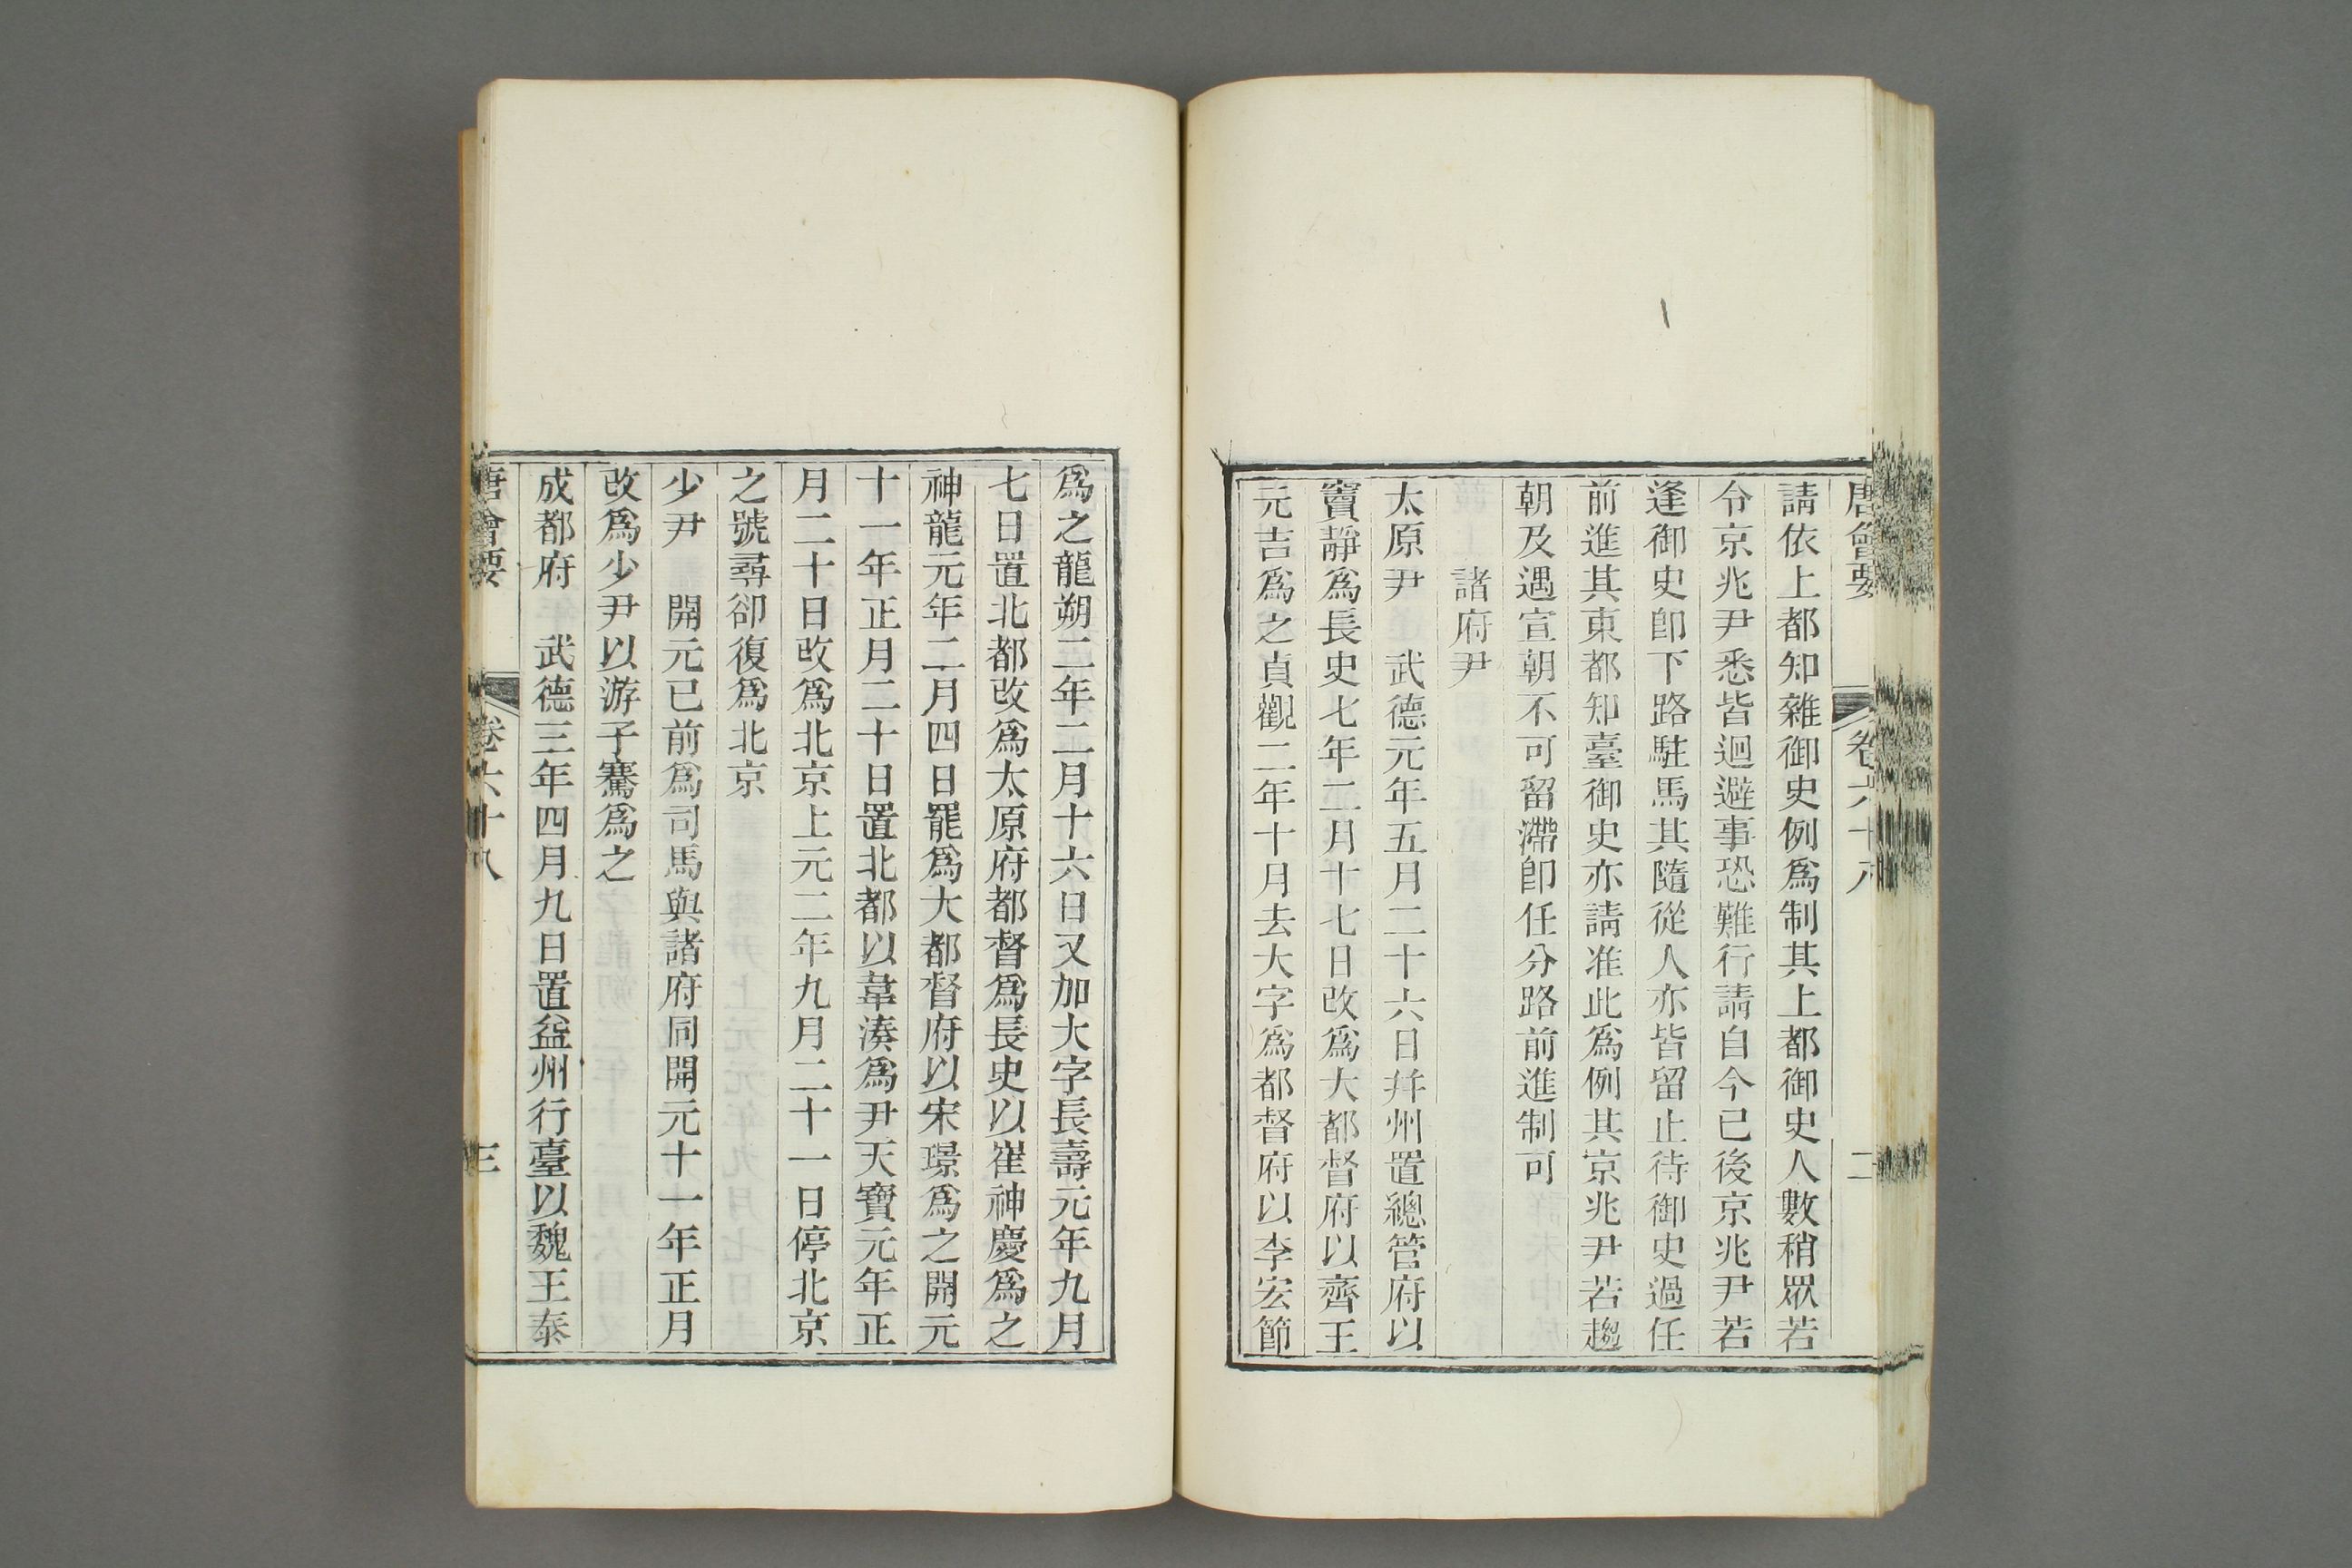 唐會要 卷六十八 二
請依上都知雜御史例爲制其上都御史人數稍眾若
令京兆尹悉皆迴避事恐難行請自今已後京兆尹若
逢御史卽下路駐馬其隨從人亦皆留止待御史過任
前進其東都知臺御史亦請准此爲例其京兆尹若趨
朝及遇宣朝不可留滯卽任分路前進制可
諸府尹
太原尹 武德元年五月二十六日幷州置總管府以
竇靜爲長史七年二月十七日改爲大都督府以齊王
元吉爲之貞觀二年十月去大字爲都督府以李宏節
爲之龍朔二年二月十六日又加大字長壽元年九月
七日置北都改爲太原府都督爲長史以崔神慶爲之
神龍元年二月四日罷爲大都督府以宋璟爲之開元
十一年正月二十日置北都以韋湊爲尹天寶元年正
月二十日改爲北京上元二年九月二十一日停北京
之號尋卻復爲北京
少尹 開元已前爲司馬與諸府同開元十一年正月
改爲少尹以游子騫爲之
成都府 武德三年四月九日置益州行臺以魏王泰
唐會要 卷六十八 三